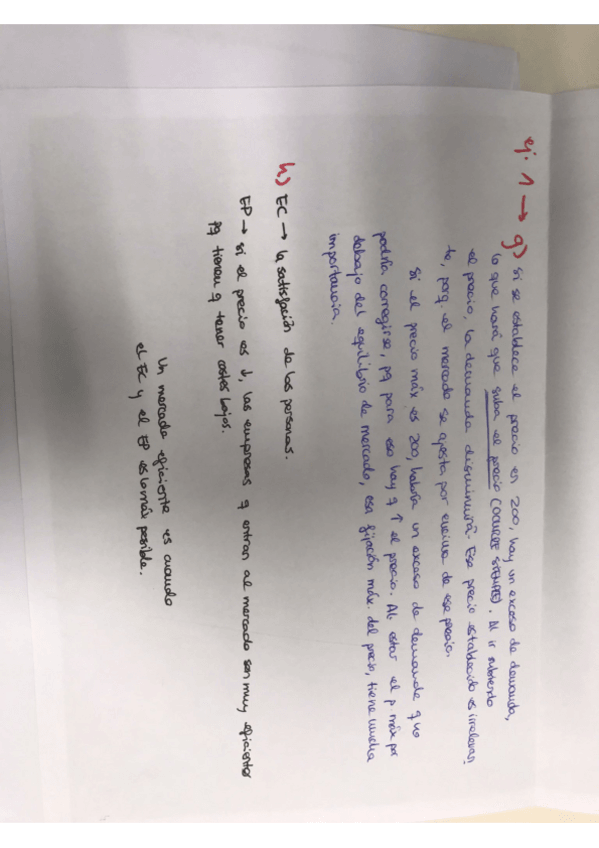 ej. 1 → g) Si se establece el precio en 200, hay un exceso de demanda,
lo que hará que suba el precio (OCURRE SIEMPRE). Al ir subiendo
el precio, la demanda disminuirá. Ese precio establecido es irrelevan
te, porq. el mercado se ajusta por encima de ese precio.
Si el precio máx es 200, habría un exceso de demanda q no
podría corregirse, pq para eso hay q ↑ el precio. Al estar el p máx por
debajo del equilibrio de mercado, esa fijación máx. del precio, tiene mucha
importancia.
h) EC → la satisfacción de las personas.
EP → si el precio es ↓, las empresas q entran al mercado son muy eficientes
pq tienen q tener costes bajos.
Un mercado eficiente es cuando
el EC y el EP es lo máx posible.